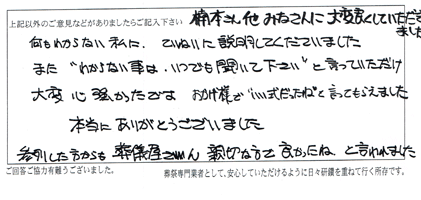 上記以外のご意見などがありましたらご記入下さい
楠本さん他みなさんに大変良くしていただき
ました
何もわからない私に、ていねいに説明してくださいました
また "わからない事は、いつでも聞いて下さい" と言っていただけ
大変心強かったです おかげ様で "いい式だったね" と言ってもらえました
本当にありがとうございました
参列した方からも 葬儀屋さん 親切な方で良かったね、と言われました
ご回答ご協力有難うございました。
葬祭専門業者として、安心していただけるように日々研鑽を重ねて行く所存です。